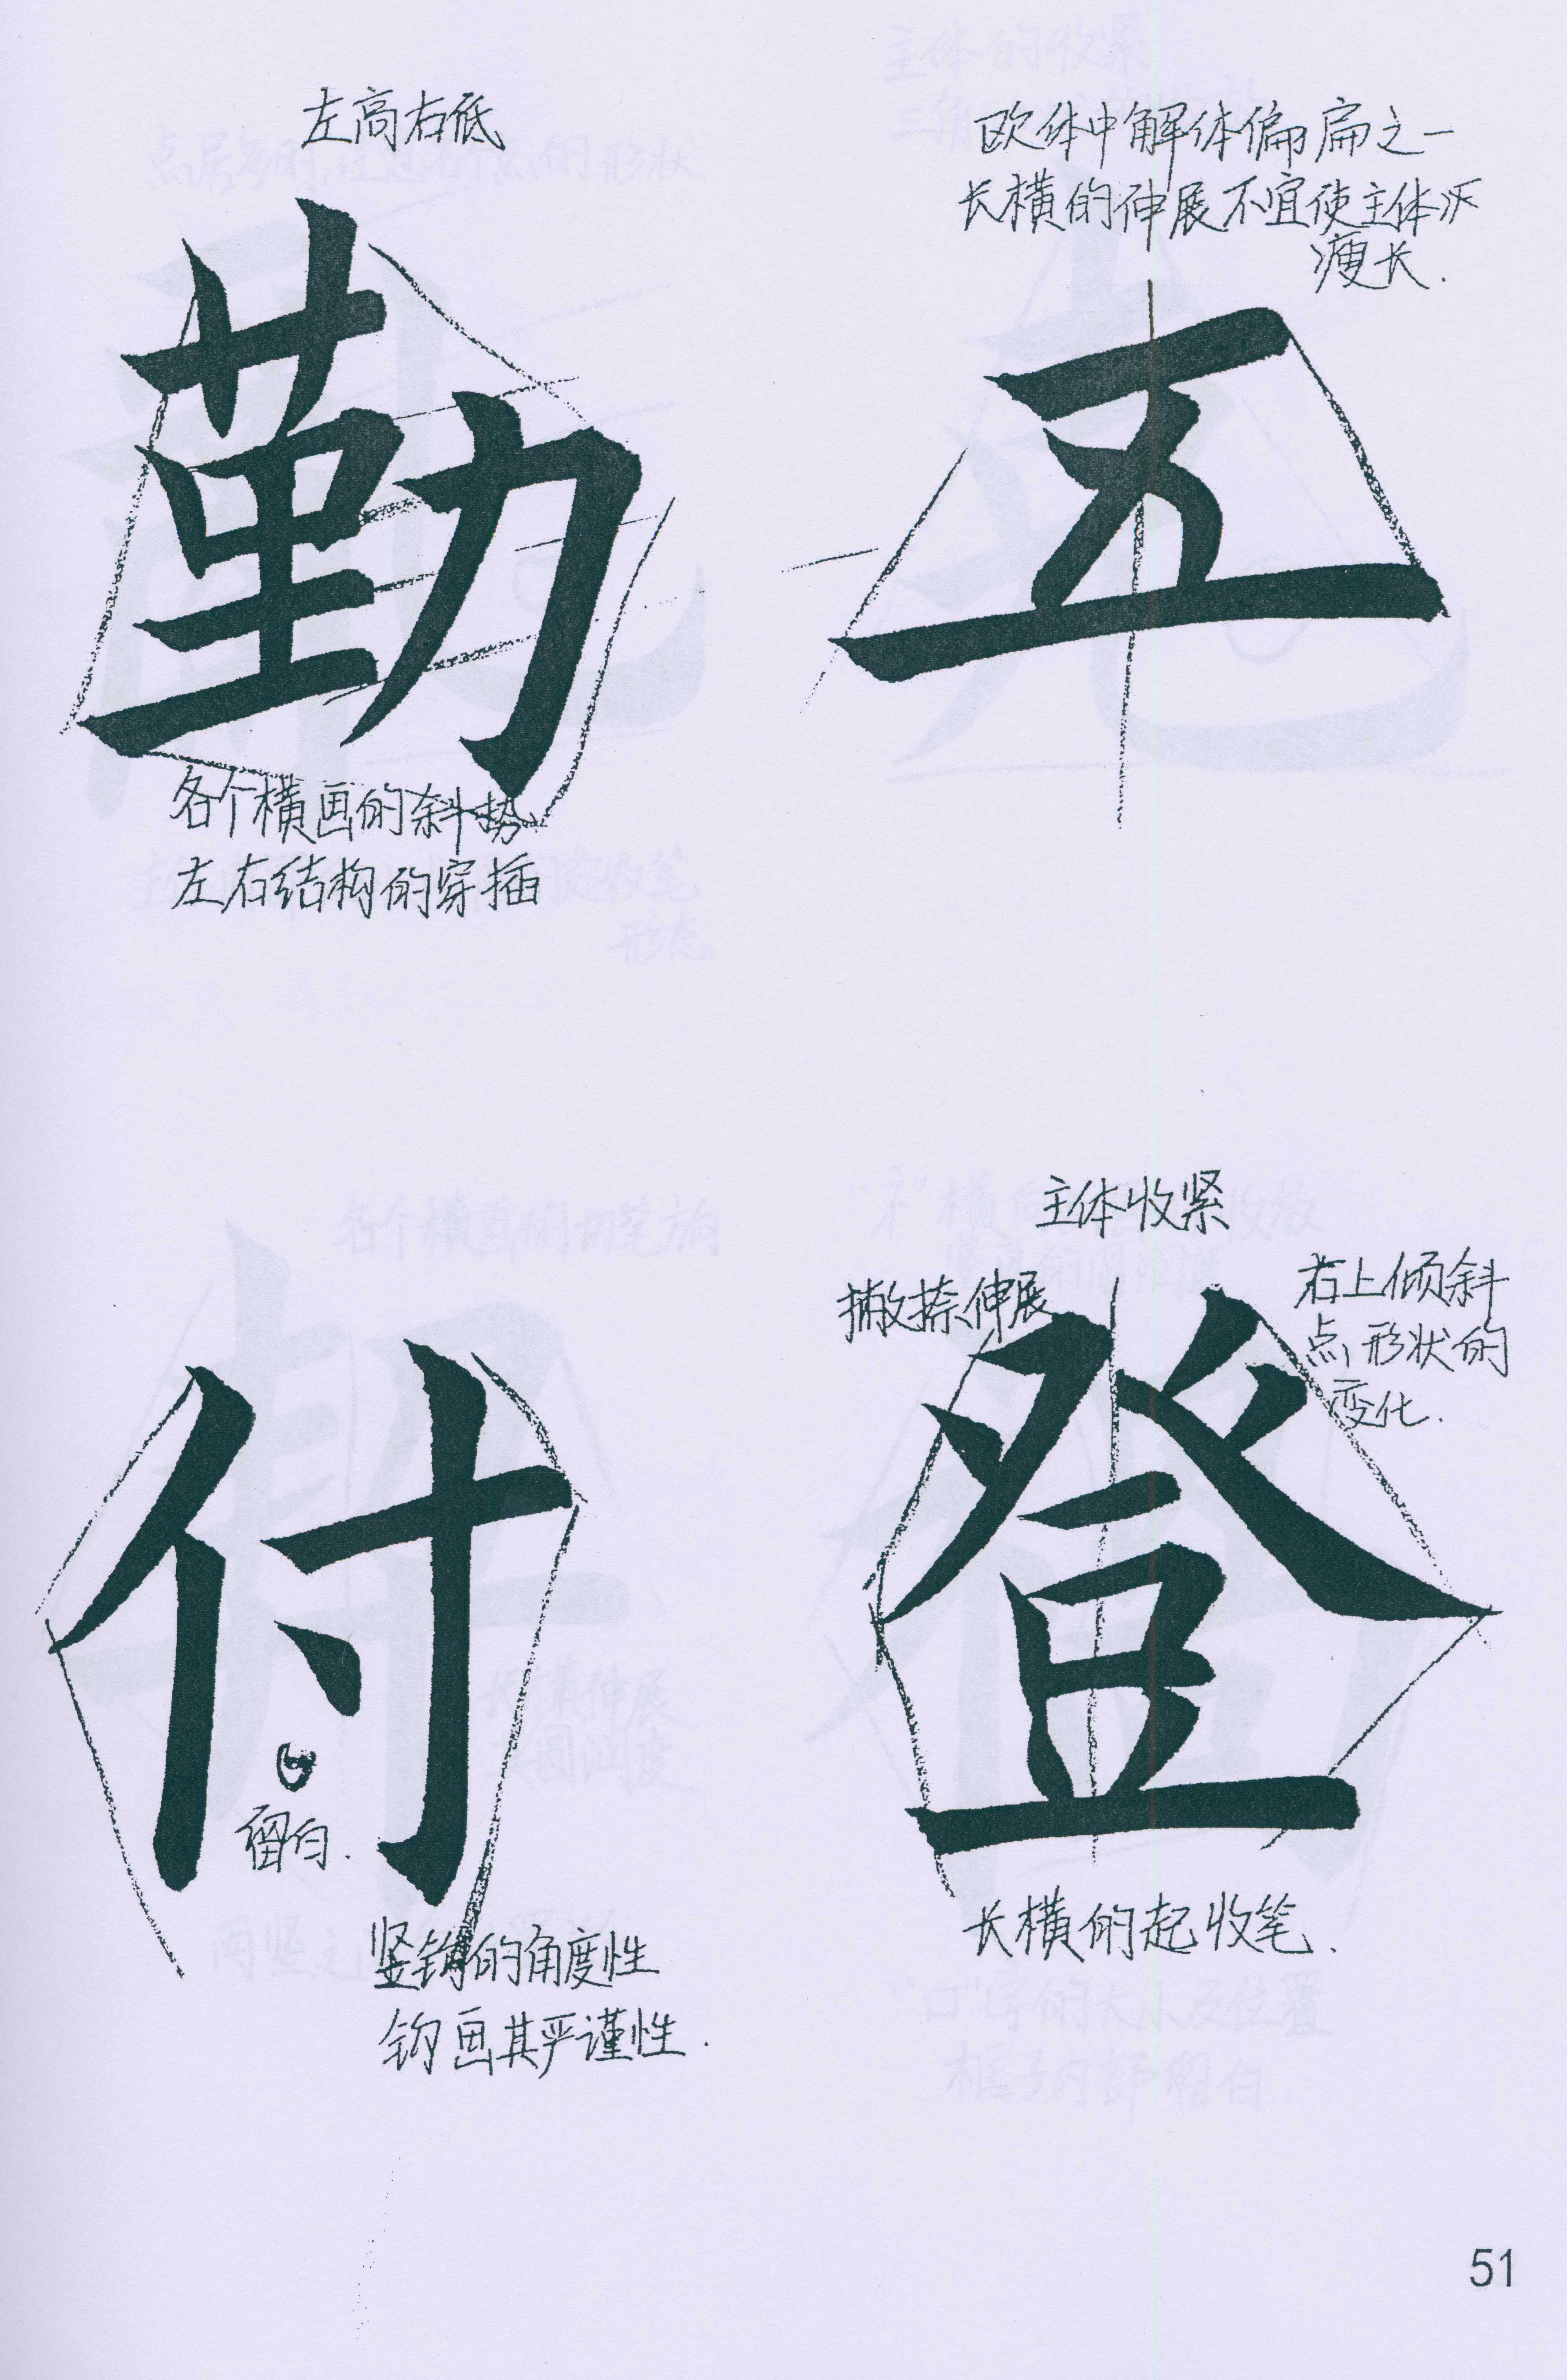 左高右低
勤
各个横画的斜势
左右结构的穿插
欧体中解体偏扁之一
长横的伸展不宜使主体
瘦长.
五
付
留白.
竖钩的角度性
钩画其严谨性.
主体收紧
撇捺伸展
右上倾斜
点形状的
变化.
登
长横的起收笔.
51